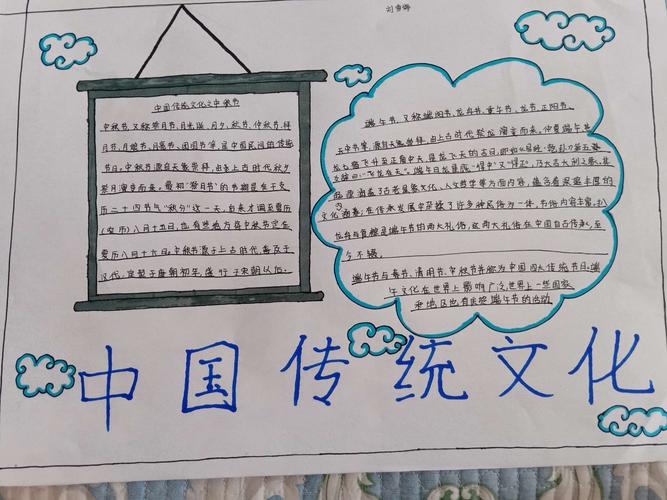 中国传统文化之中秋节
中秋节,又称祭月节、月光诞、月夕、秋节、仲秋节、拜
月节、月娘节、月亮节、团圆节等,是中国民间的传统
节日。中秋节源自天象崇拜,由上古时代秋夕
祭月演变而来。最初"祭月节"的节期是在干支
历二十四节气"秋分"这一天,后来才调至夏历
(农历)八月十五日,也有些地方将中秋节定在
夏历八月十六日。中秋节源于上古时代,普及于
汉代,定型于唐朝初年,盛行于宋朝以后。
端午节,又称端阳节、龙舟节、重午节、龙节、正阳节、
天中节等,源自天象崇拜,由上古时代祭龙演变而来。仲夏端午,苍
龙七宿飞升至正南中天,是龙飞天的吉日,即如《易经·乾卦》第五爻
爻辞曰:"飞龙在天"。端午日龙星既"得中"又"得正",乃大吉大利之象。端
涵盖了古老星象文化、人文哲学等方面内容,蕴含着深邃丰厚的
文化内涵;在传承发展中杂糅了许多种民俗为一体,节俗内容丰富。扒
龙舟与食粽是端午节的两大礼俗,这两大礼俗在中国自古传承,至
今不辍。
端午节与春节、清明节、中秋节并称为中国四大传统节日。端
午文化在世界上影响广泛,世界上一些国家
和地区也有庆贺端午节的活动
中国传统文化